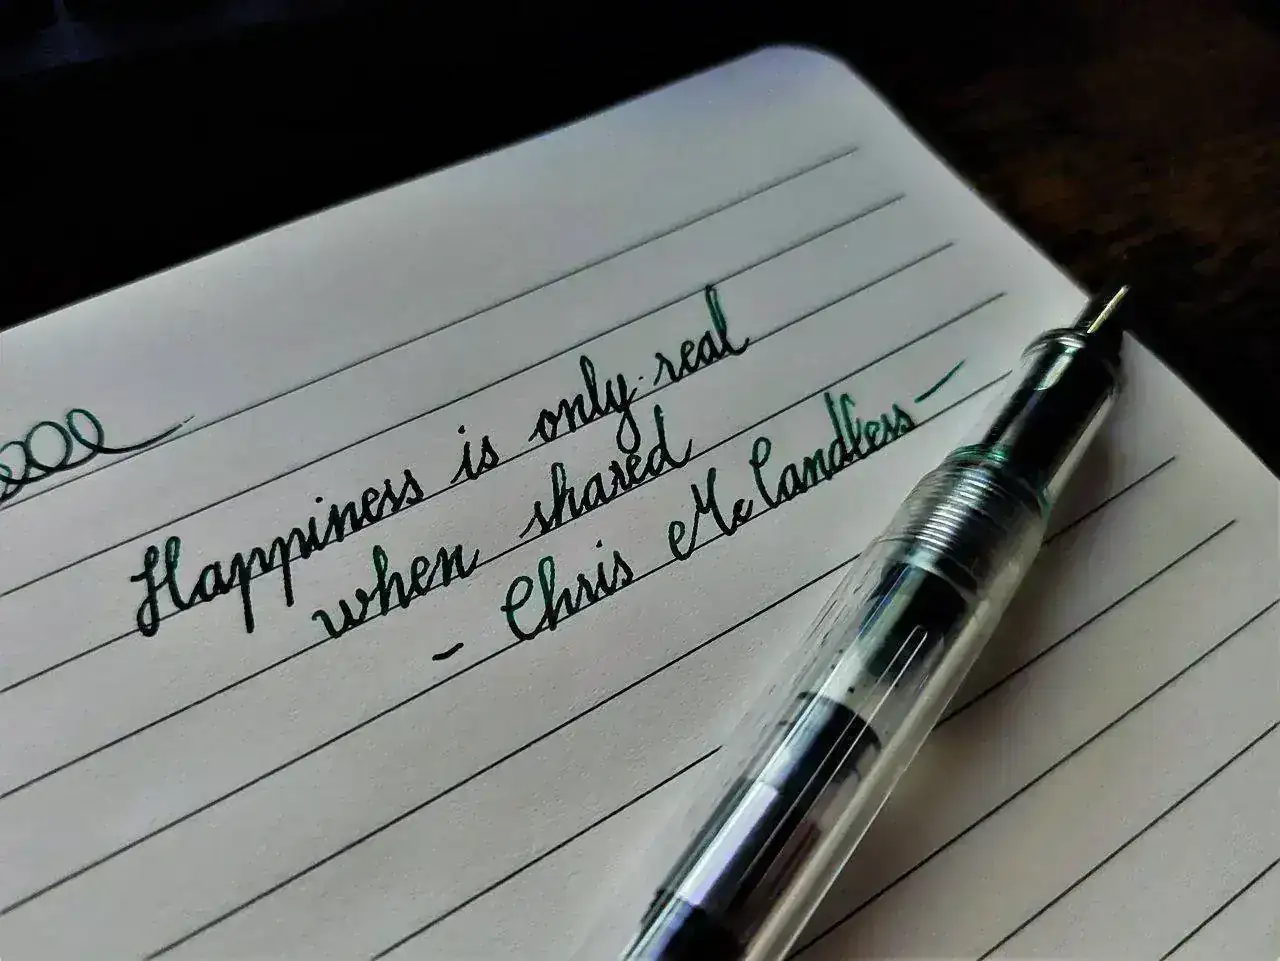 Happiness is only real
when shared
- Chris McCandless -